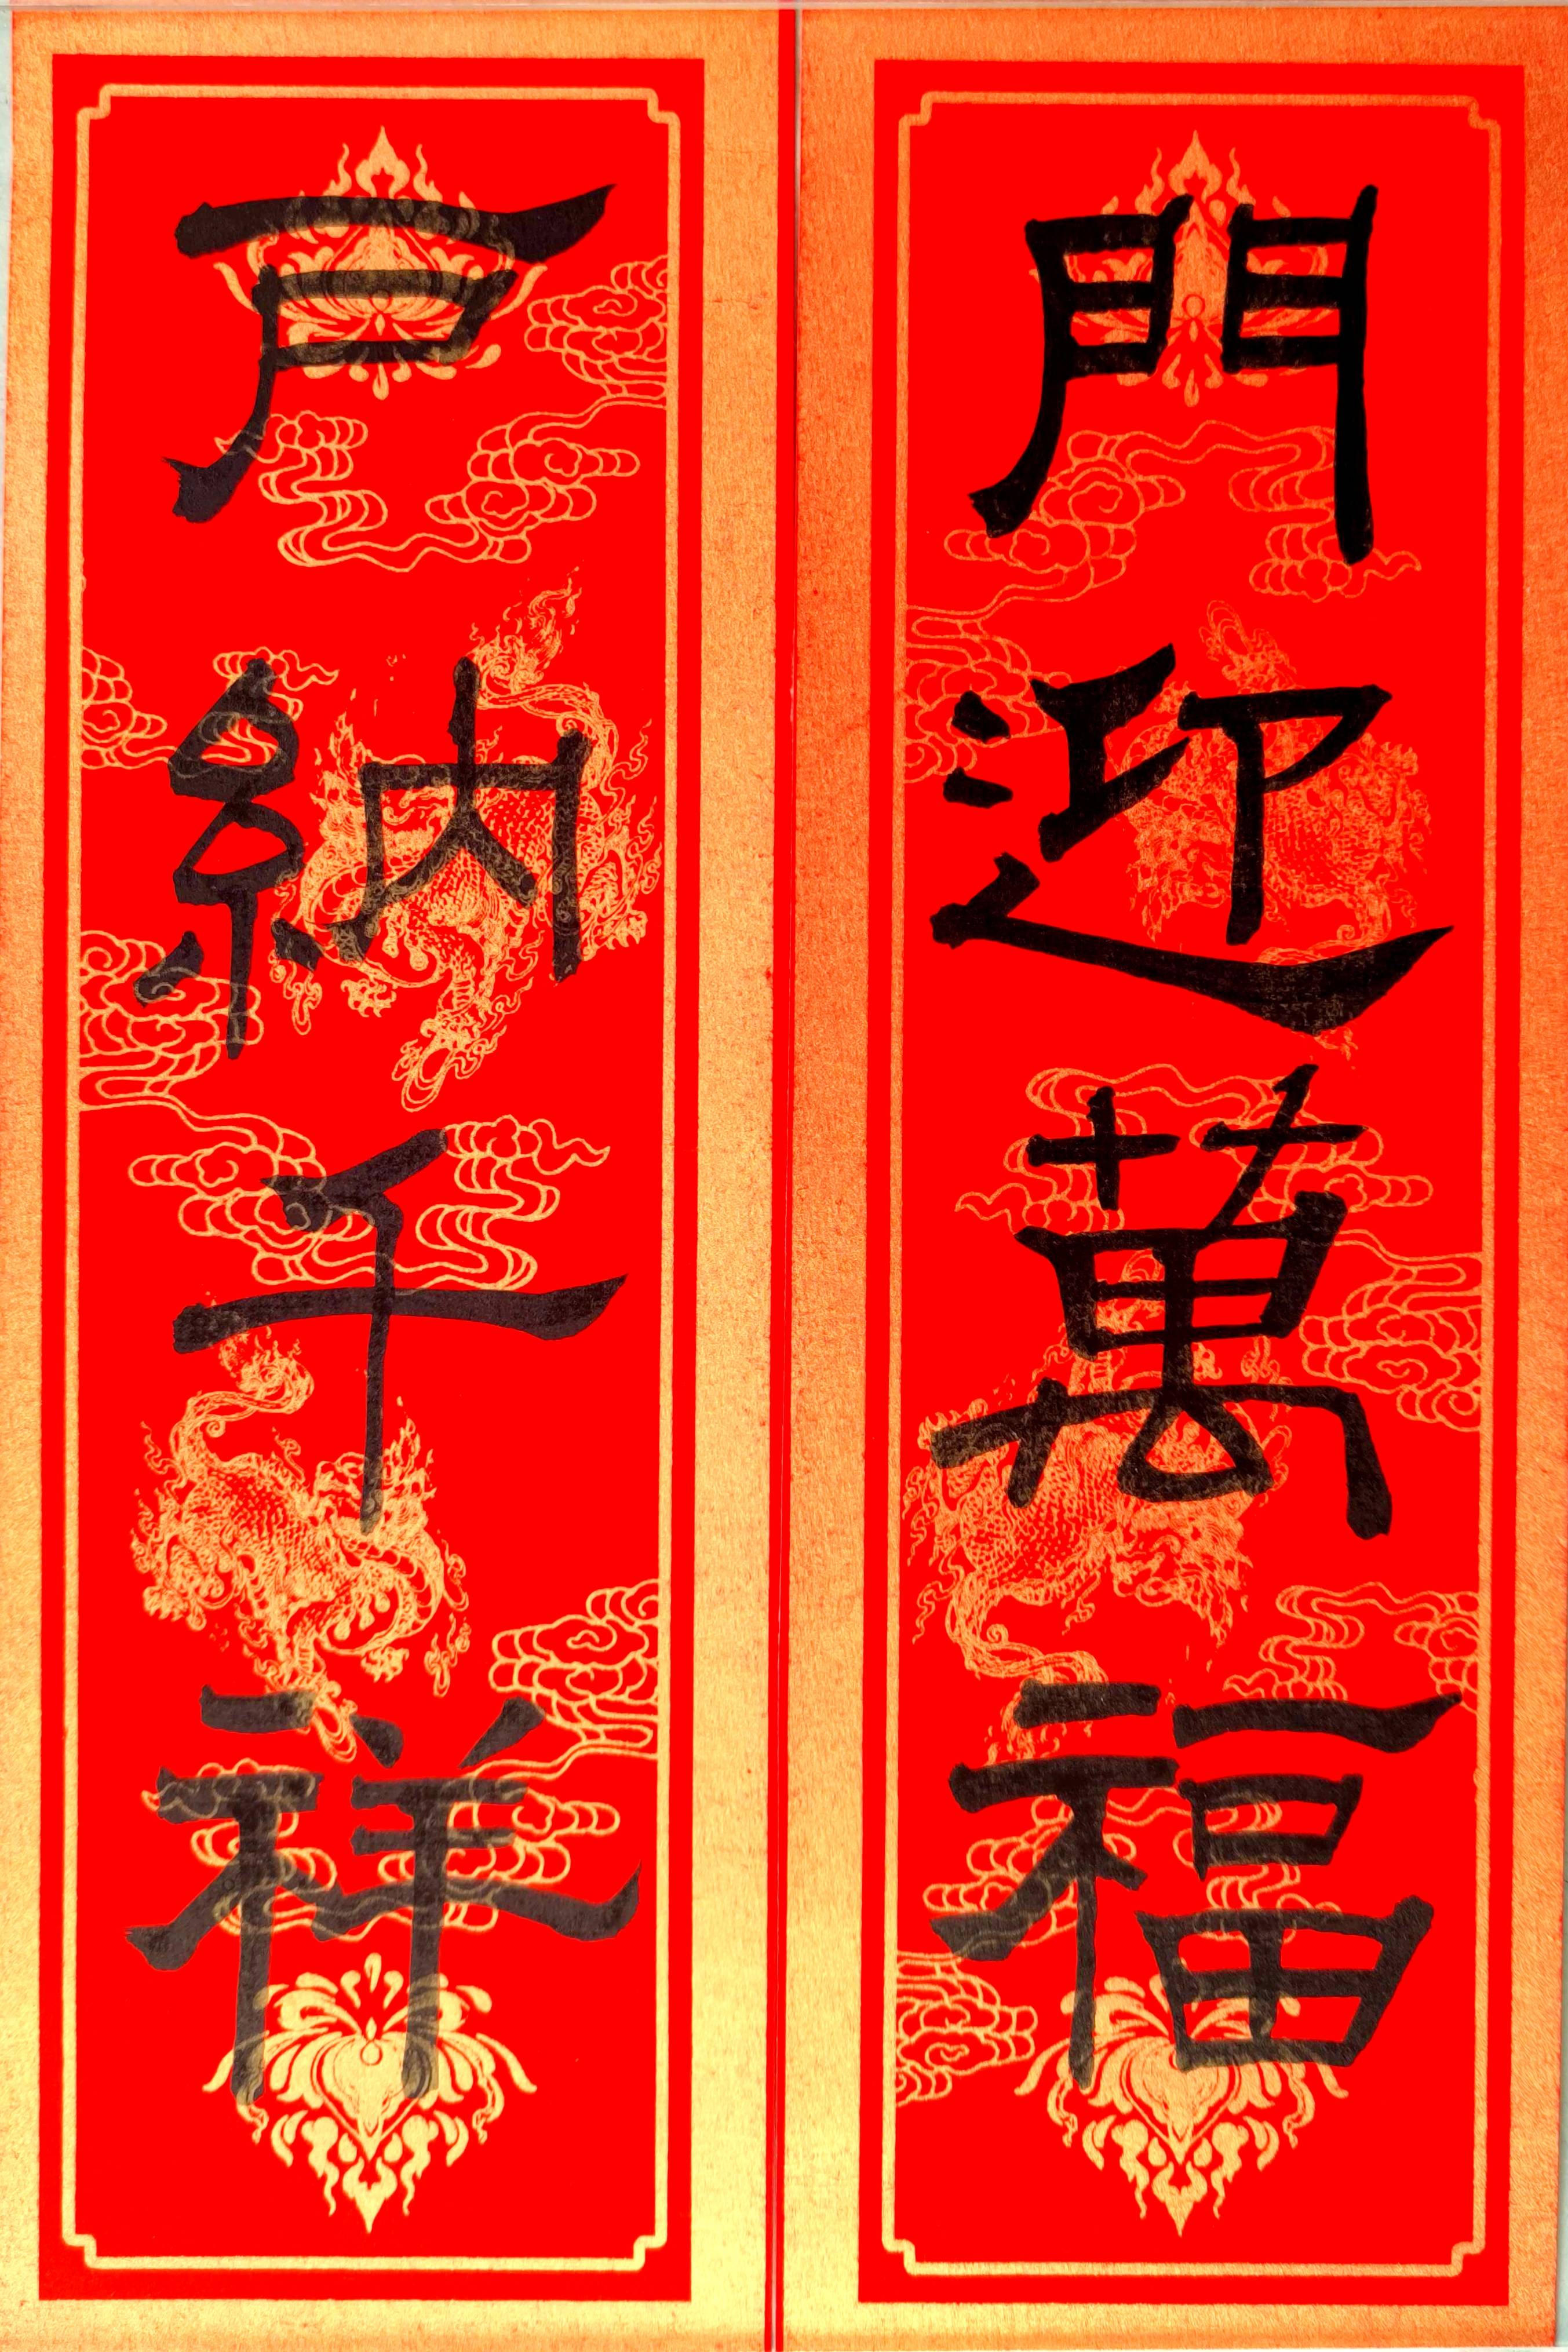 門迎萬福
戶納千祥